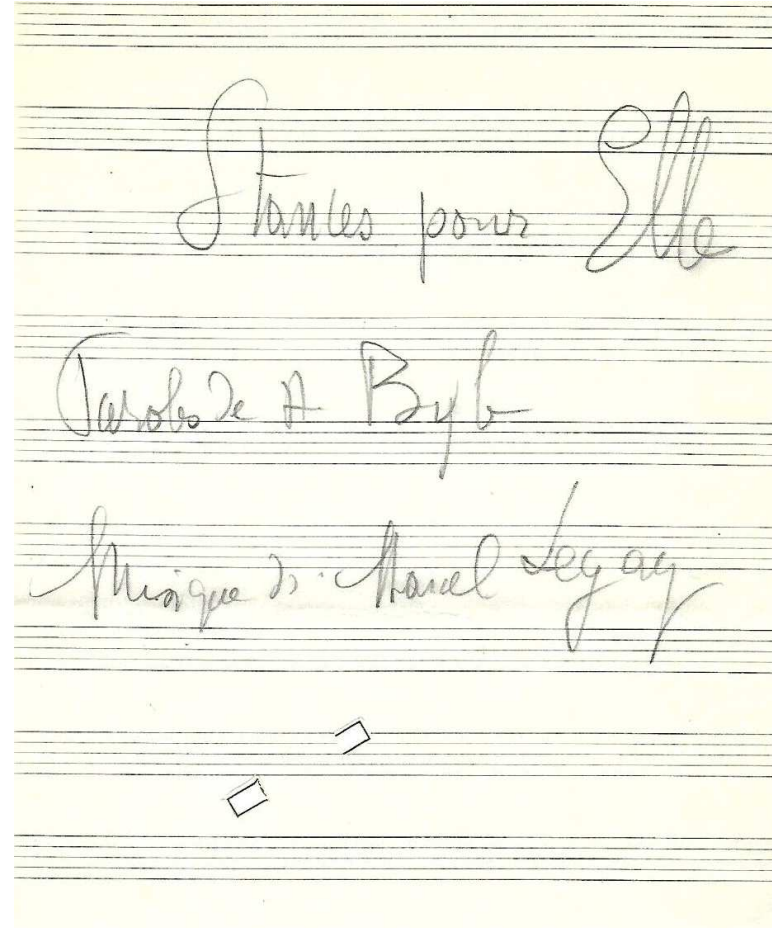 Stances pour Elle
Paroles de A Byl
Musique de Marcel Legay